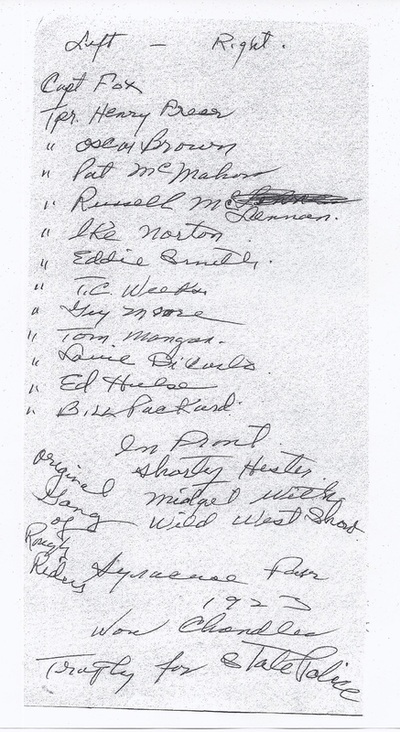 Left - Right.
Capt Fox
Tpr. Henry Freer
" Oscar Brown
" Pat McMahon
" Russell Mc
Lennan.
" Ike Norton
" Eddie Smith.
" T.C. Weeks
" Guy Moore
" Tom. Mangan.
" Louie DiCarlo
" Ed Hulse
" Bill Packard.
In Front
Shorty Hester
midget with
Wild West Show
Original
Gang
of
Rough
Riders
Syracuse Fair
1923
Won Chandler
Trophy for State Police